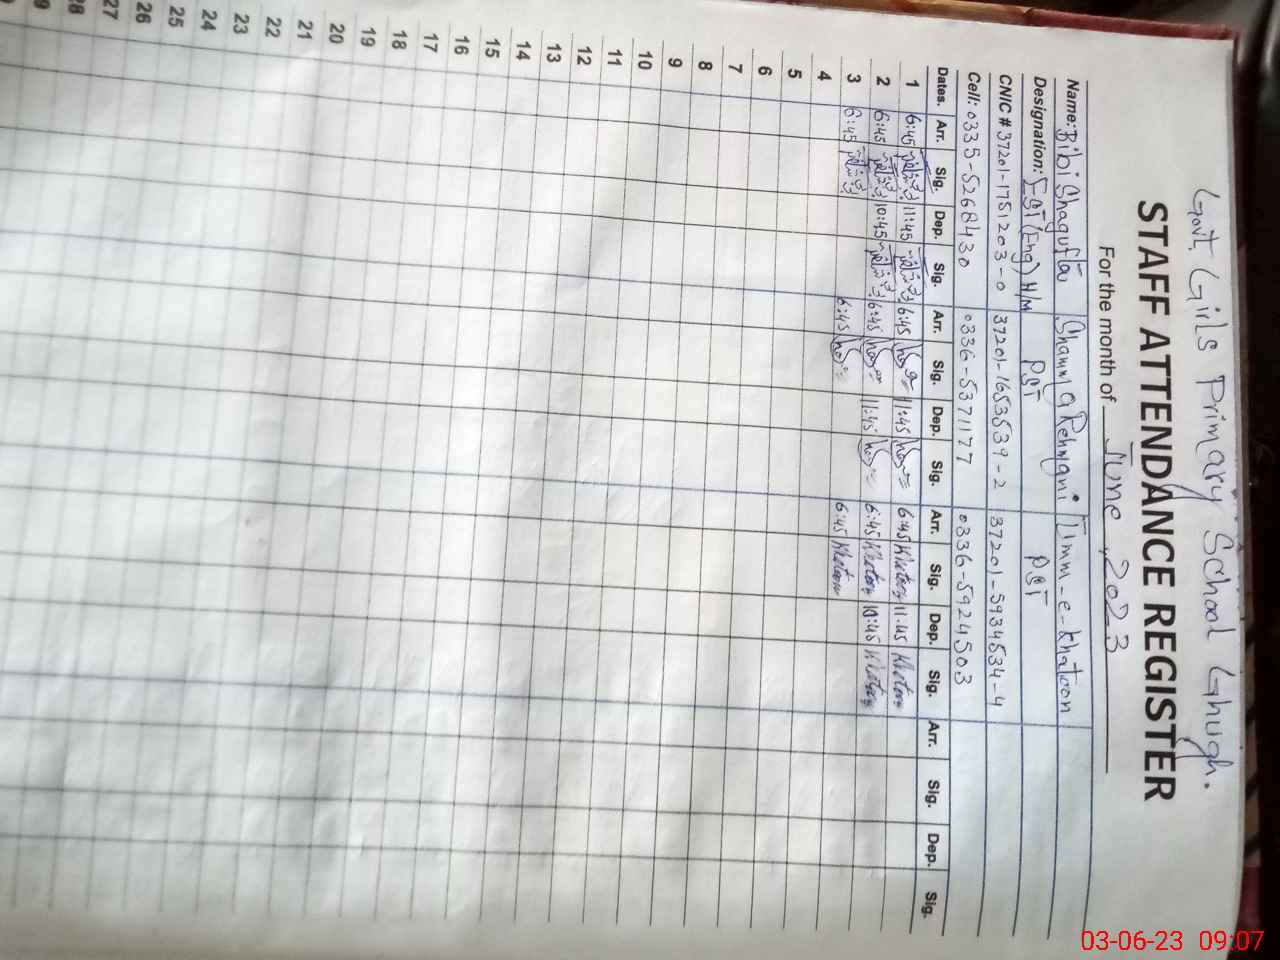 Govt. Girls Primary School Ghugh.
STAFF ATTENDANCE REGISTER
For the month of June, 2023
Name: Bibi Shagufta Shamila Rehmani Umm-e-Khatoon
Designation: EST (Eng) H/M PST PST
CNIC # 37201-1751203-0 37201-1653539-2 37201-5934534-4
Cell: 0335-5268430 0336-5371177 0336-5924503
Dates. Arr. Sig. Dep. Sig. Arr. Sig. Dep. Sig. Arr. Sig. Dep. Sig. Arr. Sig. Dep. Sig.
1 6:45 11:45 6:45 11:45 6:45 Khatoon 11:45 Khatoon
2 6:45 10:45 6:45 11:45 6:45 Khatoon 10:45 Khatoon
3 6:45 6:45 6:45 Khatoon
4
5
6
7
8
9
10
11
12
13
14
15
16
17
18
19
20
21
22
23
24
25
26
27
28
03-06-23 09:07